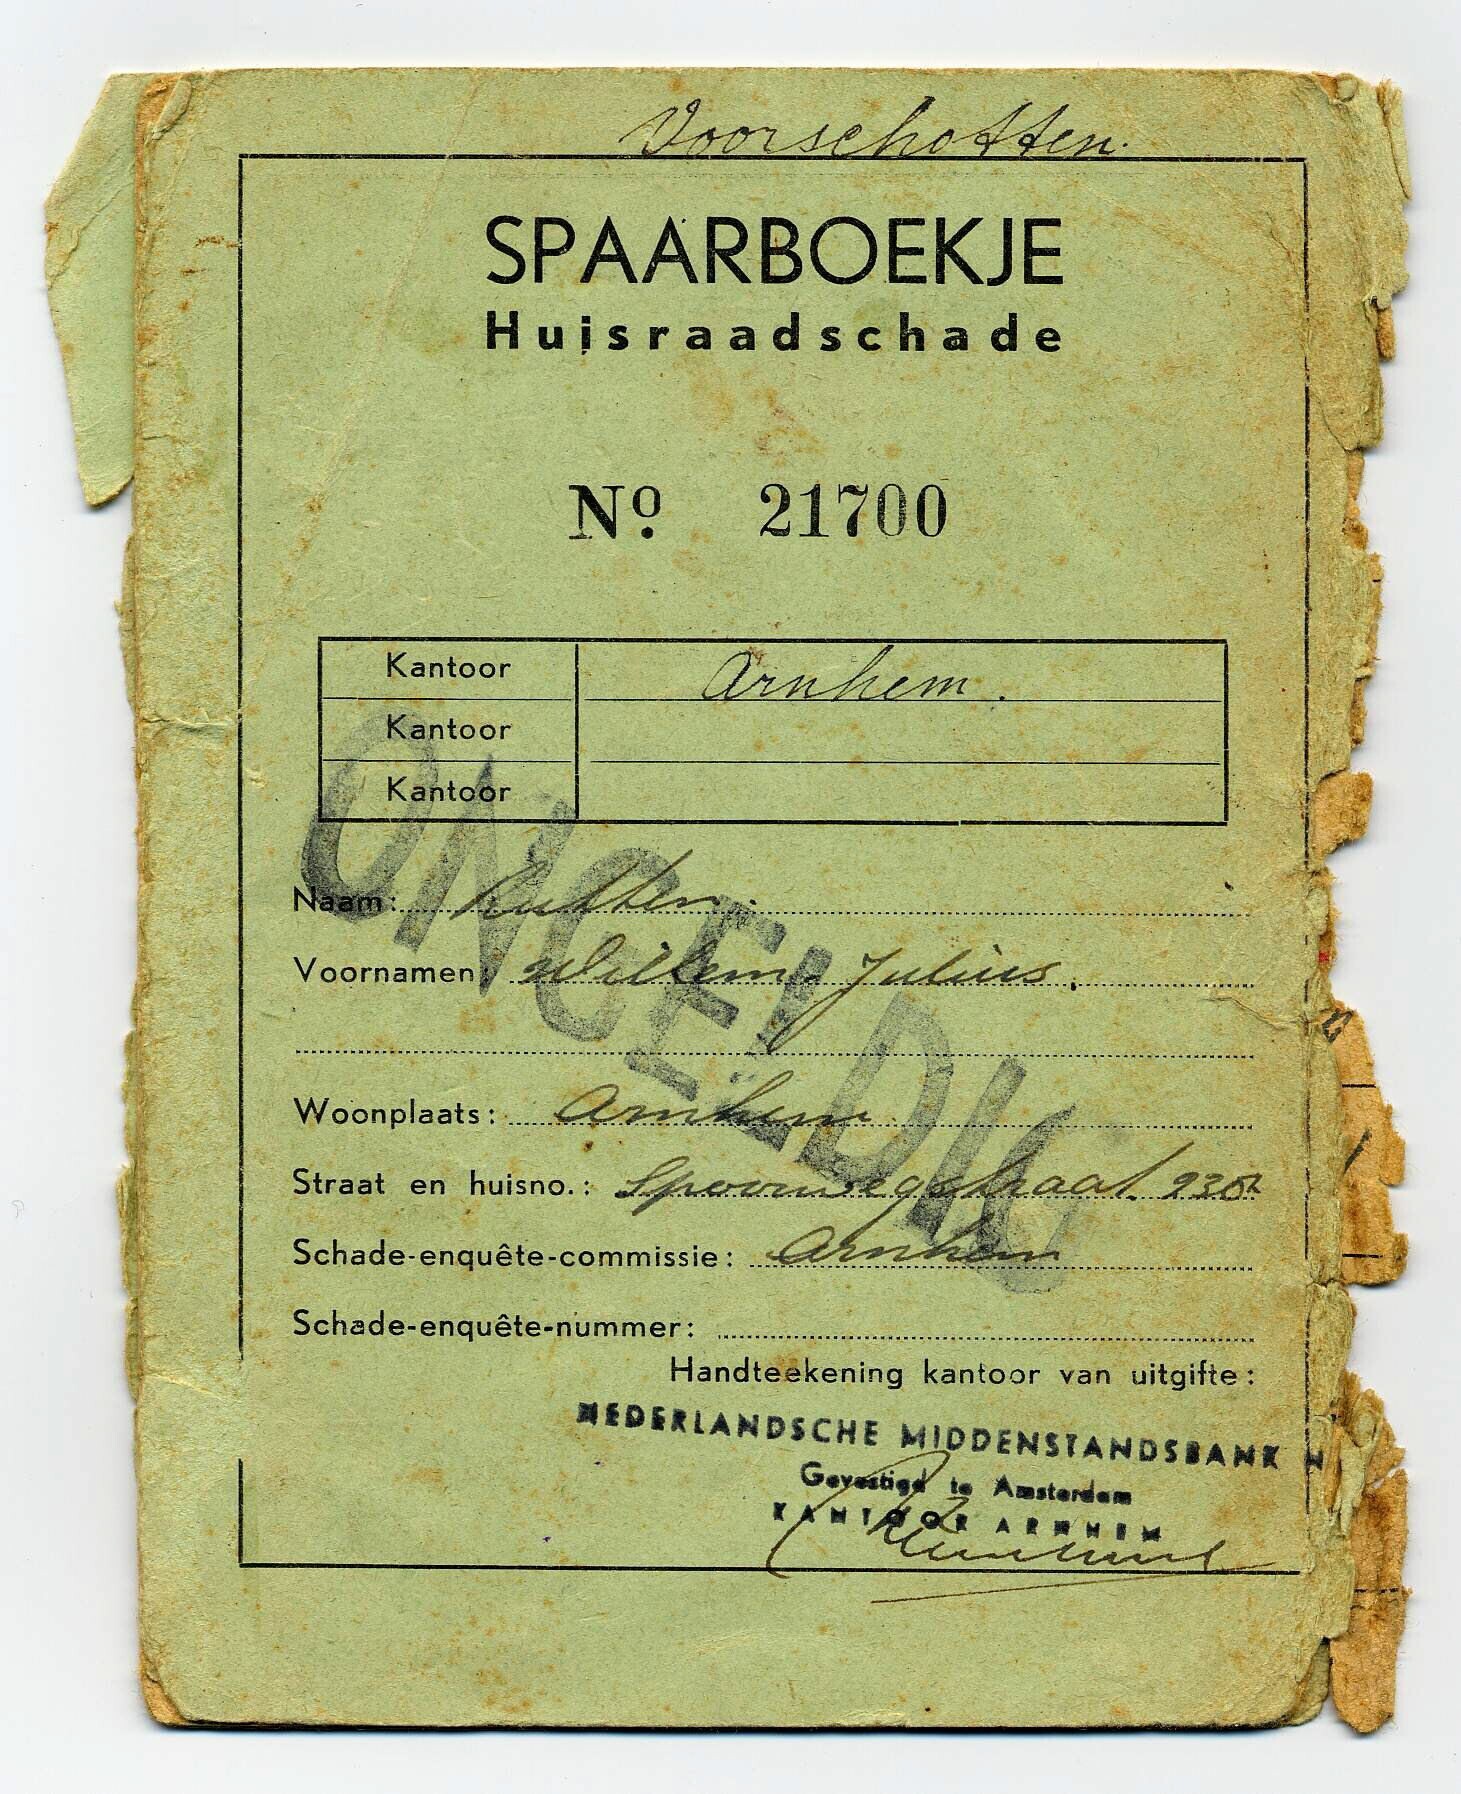 Voorschotten.
SPAARBOEKJE
Huisraadschade
No. 21700
Kantoor Arnhem.
Kantoor
Kantoor
ONGELDIG
Naam: Rutten.
Voornamen: Willem Julius,
Woonplaats: Arnhem
Straat en huisno.: Spoorwegstraat
Schade-enquête-commissie: Arnhem
Schade-enquête-nummer:
Handteekening kantoor van uitgifte:
NEDERLANDSCHE MIDDENSTANDSBANK N
Gevestigd te Amsterdam
KANTOOR ARNHEM